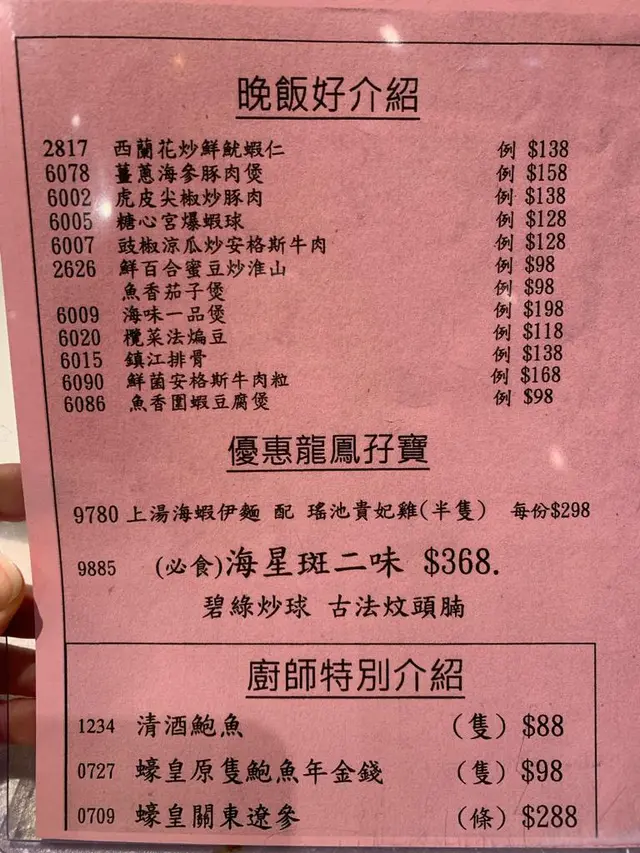 晚飯好介紹
2817 西蘭花炒鮮魷蝦仁 例 $138
6078 薑蔥海參豚肉煲 例 $158
6002 虎皮尖椒炒豚肉 例 $138
6005 糖心宮爆蝦球 例 $128
6007 豉椒涼瓜炒安格斯牛肉 例 $128
2626 鮮百合蜜豆炒淮山 例 $98
魚香茄子煲 例 $98
6009 海味一品煲 例 $198
6020 欖菜法煸豆 例 $118
6015 鎮江排骨 例 $138
6090 鮮菌安格斯牛肉粒 例 $168
6086 魚香圍蝦豆腐煲 例 $98
優惠龍鳳孖寶
9780 上湯海蝦伊麵 配 瑤池貴妃雞(半隻) 每份$298
9885 (必食)海星斑二味 $368.
碧綠炒球 古法炆頭腩
廚師特別介紹
1234 清酒鮑魚 (隻) $88
0727 蠔皇原隻鮑魚年金錢 (隻) $98
0709 蠔皇關東遼參 (條) $288